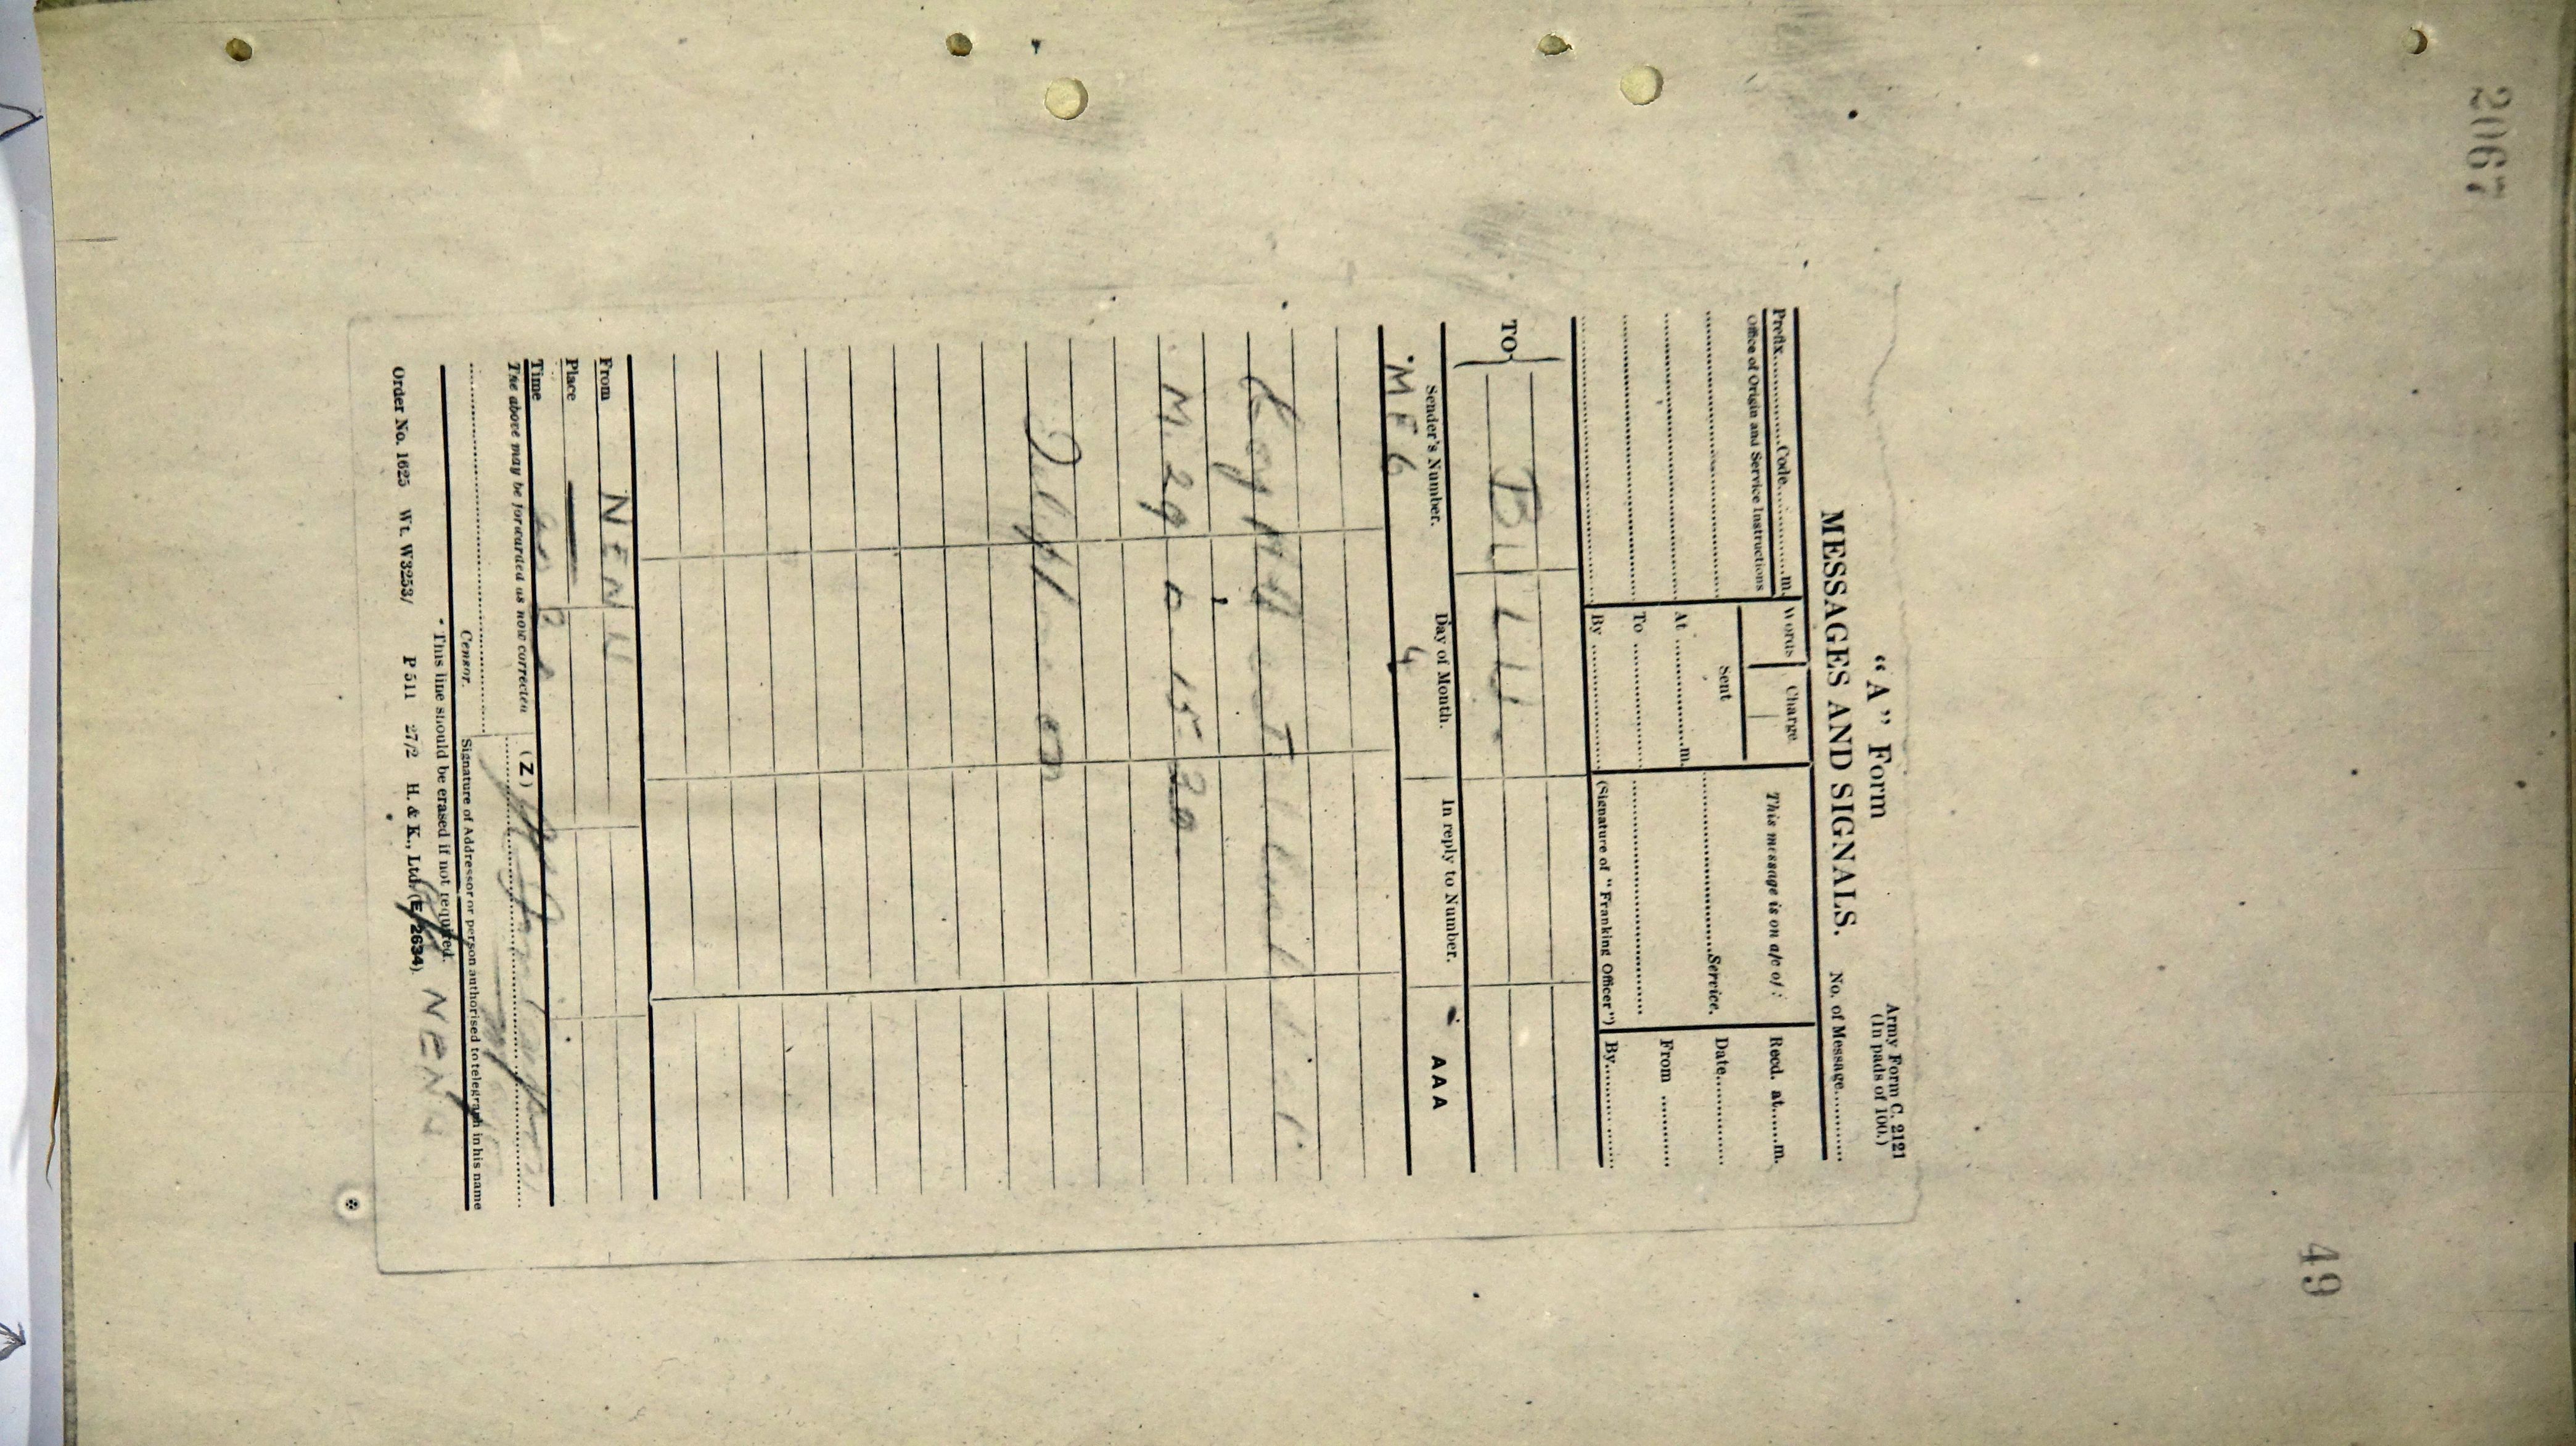 2067
49
"A" Form
Army Form C. 2121
(In pads of 100.)
MESSAGES AND SIGNALS.
No. of Message............
Prefix............Code............m.
Words
Charge
This message is on a/c of :
Recd. at......m.
Office of Origin and Service Instructions
Sent
Date............
At ............m.
............Service.
From ............
To ............
By ............
(Signature of "Franking Officer")
By............
TO
BULU.
Sender's Number.
Day of Month.
In reply to Number.
AAA
*MF6
4
M.29 b 15.20
From NENU
Place
Time
The above may be forwarded as now corrected
(Z)
Censor.
Signature of Addressor or person authorised to telegraph in his name
* This line should be erased if not required.
Order No. 1625 Wt. W3253/ P 511 27/2 H. & K., Ltd. (E/2634).
NENU